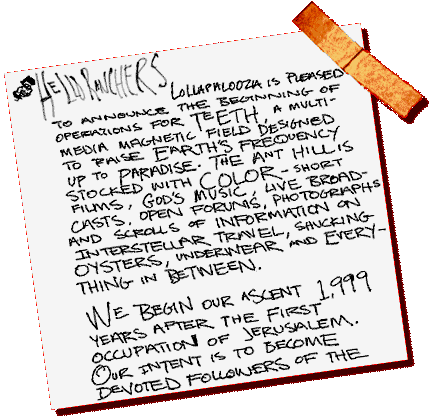 HELLO RANCHERS LOLLAPALOOZA IS PLEASED
TO ANNOUNCE THE BEGINNING OF
OPERATIONS FOR TEETH, A MULTI-
MEDIA MAGNETIC FIELD DESIGNED
TO RAISE EARTH'S FREQUENCY
UP TO PARADISE. THE ANT HILL IS
STOCKED WITH COLOR - SHORT
FILMS, GOD'S MUSIC, LIVE BROAD-
CASTS, OPEN FORUMS, PHOTOGRAPHS
AND SCROLLS OF INFORMATION ON
INTERSTELLAR TRAVEL, SHUCKING
OYSTERS, UNDERWEAR AND EVERY-
THING IN BETWEEN.
WE BEGIN OUR ASCENT 1,999
YEARS AFTER THE FIRST
OCCUPATION OF JERUSALEM.
OUR INTENT IS TO BECOME
DEVOTED FOLLOWERS OF THE